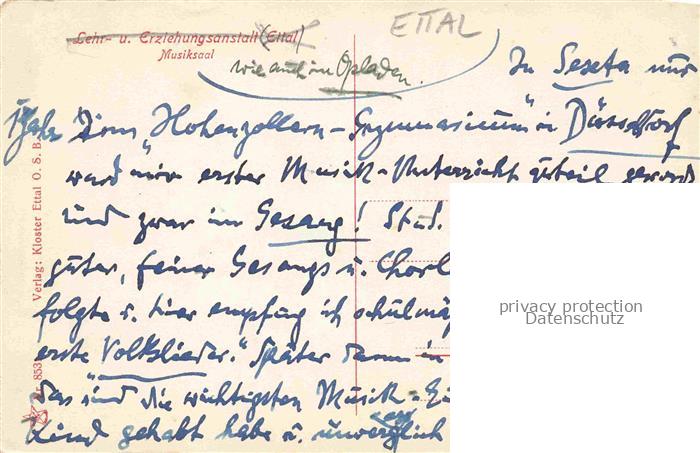 Lehr- u. Erziehungsanstalt (Ettal)
Musiksaal
ETTAL
wie auch in Opladen.
In Sexta nur
1 Jahr im "Hohenzollern-Gymnasium" in Düsseldorf
ward mir erster Musik-Unterricht zuteil geword
und zwar im Gesang! Stud.
guter, feiner Gesangs u. Chorl
folgte u. hier empfing ich schulmä
erste Volkslieder." Später dann in
das sind die wichtigsten Musik-Ei
Kind gehabt habe u. unverg lich
Verlag: Kloster Ettal O. S. B.
Nr. 853
privacy protection
Datenschutz